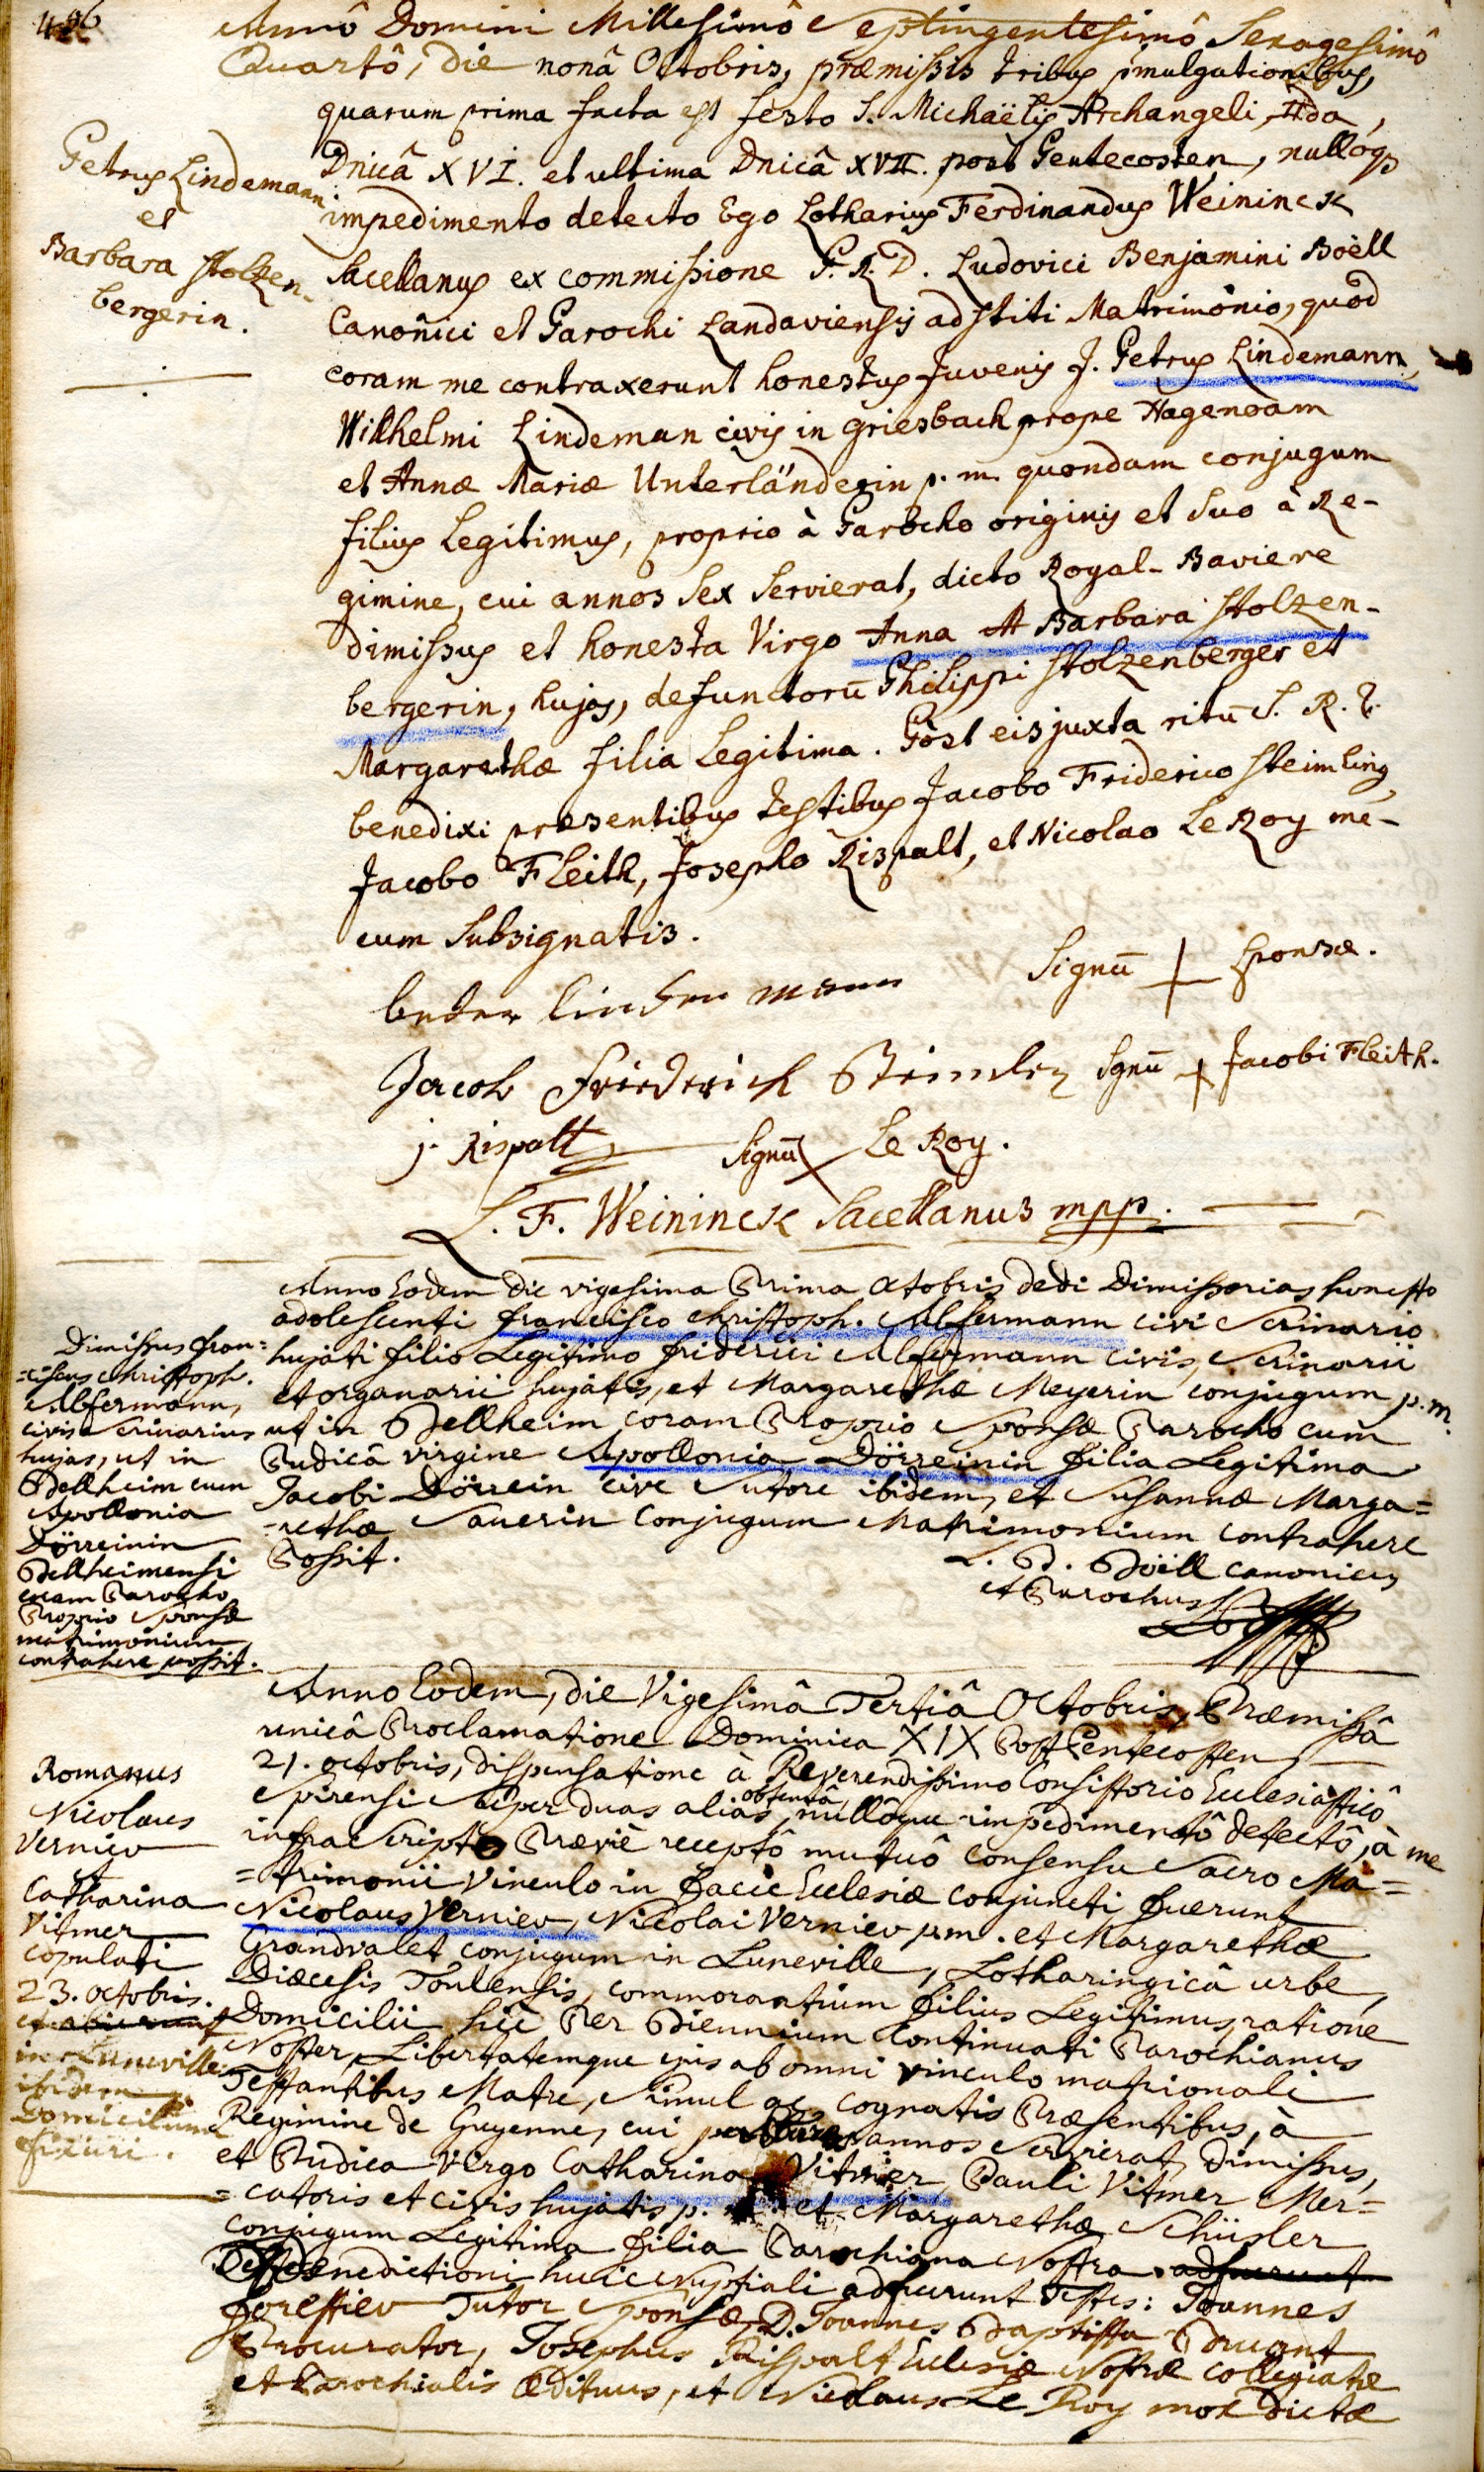 496
Annô Domini Millesimô Septingentesimô Sexagesimô
Quartô, Die nonâ Octobris, præmissis tribus pmulgationibus,
quarum prima facta est festo S. Michaëlis Archangeli, IIda,
Dnicâ XVI. et ultima Dnicâ XVII. post Pentecosten, nulloq3
impedimento detecto Ego Lotharius Ferdinandus Weininck
Sacellanus ex commissione P. R. D. Ludovici Benjamini Boëll
Canonici et Parochi Landaviensis adstiti Matrimonio, quod
coram me contraxerunt honestus Juvenis J. Petrus Lindemann,
Wilhelmi Lindeman civis in Griesbach prope Hagenoam
et Annæ Mariæ Unterländerin p. m. quondam conjugum
filius Legitimus, proprio à Parocho originis et suo à Re-
gimine, cui annos sex servierat, dicto Royal-Baviere
dimissus et honesta Virgo Anna Barbara Stolzen-
bergerin, hujas, defunctorū Philippi Stolzenberger et
Margarethæ filia Legitima. Post eis juxta ritū S. R. E.
benedixi præsentibus testibus Jacobo Friderico Steimling,
Jacobo Fleith, Josepho Rispalt, et Nicolao Le Roy me-
cum subsignatis.
Petrus Lindemann
et
Barbara Stolzen-
bergerin.
beder linden mann
Signū + Sponsæ.
Jacob Friedrich Steimlen
Sgnū + Jacobi Fleith.
j. Rispalt
Signū X Le Roy.
L. F. Weininck Sacellanus mpp.
Anno Eodem die vigesima Prima octobris dedi Dimissorias honesto
adolescenti francisco christoph. Alfermann civi Scrinario
hujati filio Legitimo friderici Alfermann civis, Scrinarii
et organarii hujatis, et Margarethæ Meyerin conjugum p.m.
ut in Bellheim coram Proprio Sponsæ Parocho cum
Pudicâ virgine Apollonia Dörreinin filia Legitima
Jacobi Dörrein cive Sutore ibidem, et Susannæ Marga=
=rethæ Sauerin Conjugum Matrimonium contrahere
Possit.
L. B. Boëll canonicus
et Parochus
Dimissus fran=
=ciscus christoph.
Alfermann,
civis Scrinarius
hujas, ut in
Bellheim cum
Apollonia
Dörreinin
Bellheimensi
coram Parocho
Proprio Sponsæ
matrimonium
contrahere possit.
Anno Eodem, die Vigesimâ Tertiâ Octobris, Præmissâ
unicâ Proclamatione Dominica XIX Post Pentecosten,
21. octobris, dispensatione à Reverendissimo Consistorio Ecclesiasticô
Spirensi Super duas alias obtentâ, nullôque impedimentô detectô, à me
infrascripto Præviè receptô mutuô consensu Sacro Ma=
=trimonii Vinculo in facie Ecclesiæ conjuncti fuerunt
Nicolaus Verniev, Nicolai Verniev p.m. et Margarethæ
Grandvalet conjugum in Luneville, Lotharingicâ urbe,
Diœcesis Toulensis, commorantium filius Legitimus, ratione
Domicilii hîc Per Biennium continuati Parochianus
Noster, Libertatemque ejus ab omni vinculo matrionali
Testantibus Matre, Simul ac cognatis Præsentibus, à
Regimine de Guyenne, cui annos Servierat, Dimissus,
et Pudica Virgo Catharina Vitmer Pauli Vitmer Mer=
=catoris et civis hujatis p. et Margarethæ Schüsler
conjugum Legitima filia Parochiana Nostra. adfuerunt
Benedictioni huic Nuptiali adfuerunt testes: Joannes
forestiev Tutor Sponsæ, D. Joannes Baptista Bruant
Procurator, Josephus Rispalt Ecclesiæ Nostræ collegiatæ
et Parochialis ædituus, et Nicolaus Le Roy mox dictæ
Romanus
Nicolaus
Verniev
et
Catharina
Vitmer
copulati
23. octobris.
in Luneville
ibidem
Domicilium
fixuri.